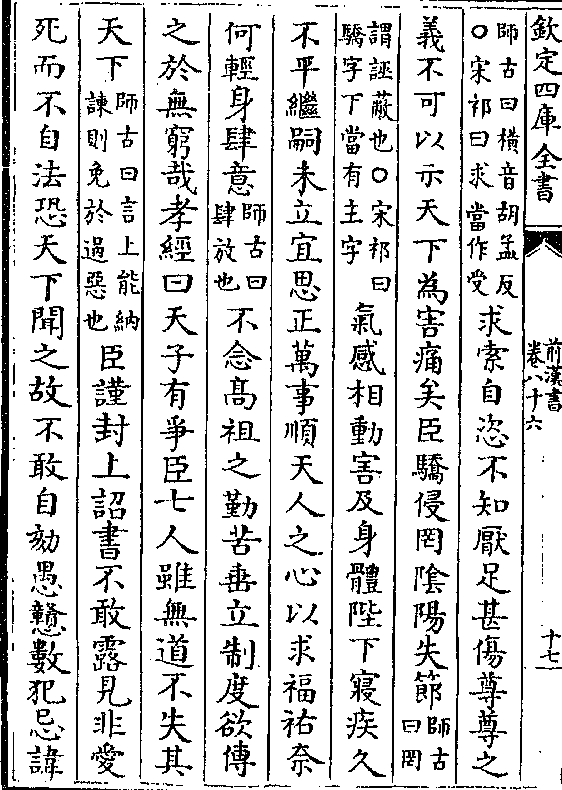 欽定四庫全書
前漢書
卷八十六
十七
師古曰橫音胡孟反
○宋祁曰求當作受
求索自恣不知厭足甚傷尊尊之
義不可以示天下為害痛矣臣驕侵罔陰陽失節
師古
曰罔
謂誣蔽也○宋祁曰
驕字下當有主字
氣感相動害及身體陛下寢疾久
不平繼嗣未立宜思正萬事順天人之心以求福祐奈
何輕身肆意
師古曰
肆放也
不念高祖之勤苦垂立制度欲傳
之於無窮哉孝經曰天子有爭臣七人雖無道不失其
天下
師古曰言上能納
諫則免於過惡也
臣謹封上詔書不敢露見非愛
死而不自法恐天下聞之故不敢自劾愚戇數犯忌諱